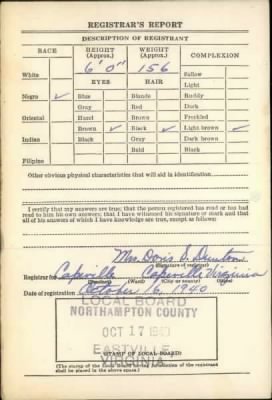 REGISTRAR'S REPORT
DESCRIPTION OF REGISTRANT
RACE HEIGHT (Approx.) WEIGHT (Approx.) COMPLEXION
White 6' 0" 156 Sallow
EYES HAIR Light
Negro ✓ Blue Blonde Ruddy
Gray Red Dark
Oriental Hazel Brown Freckled
Brown ✓ Black ✓ Light brown ✓
Indian Black Gray Dark brown
Bald Black
Filipino
Other obvious physical characteristics that will aid in identification
I certify that my answers are true; that the person registered has read or has had read to him his own answers; that I have witnessed his signature or mark and that all of his answers of which I have knowledge are true, except as follows:
Mrs. Doris S.
(Signature of registrar)
Registrar for Capeville Capeville Virginia
(Precinct) (Ward) (City or county) (State)
Date of registration October 16, 1940
LOCAL BOARD
NORTHAMPTON COUNTY
OCT 17
EASTVILLE
(STAMP OF LOCAL BOARD)
VIRGINIA
(The stamp of the Local Board having jurisdiction of the registrant shall be placed in the above space.)